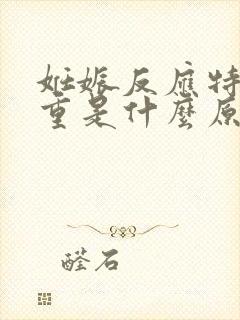 妊娠反應特
重是什麼原
醛石